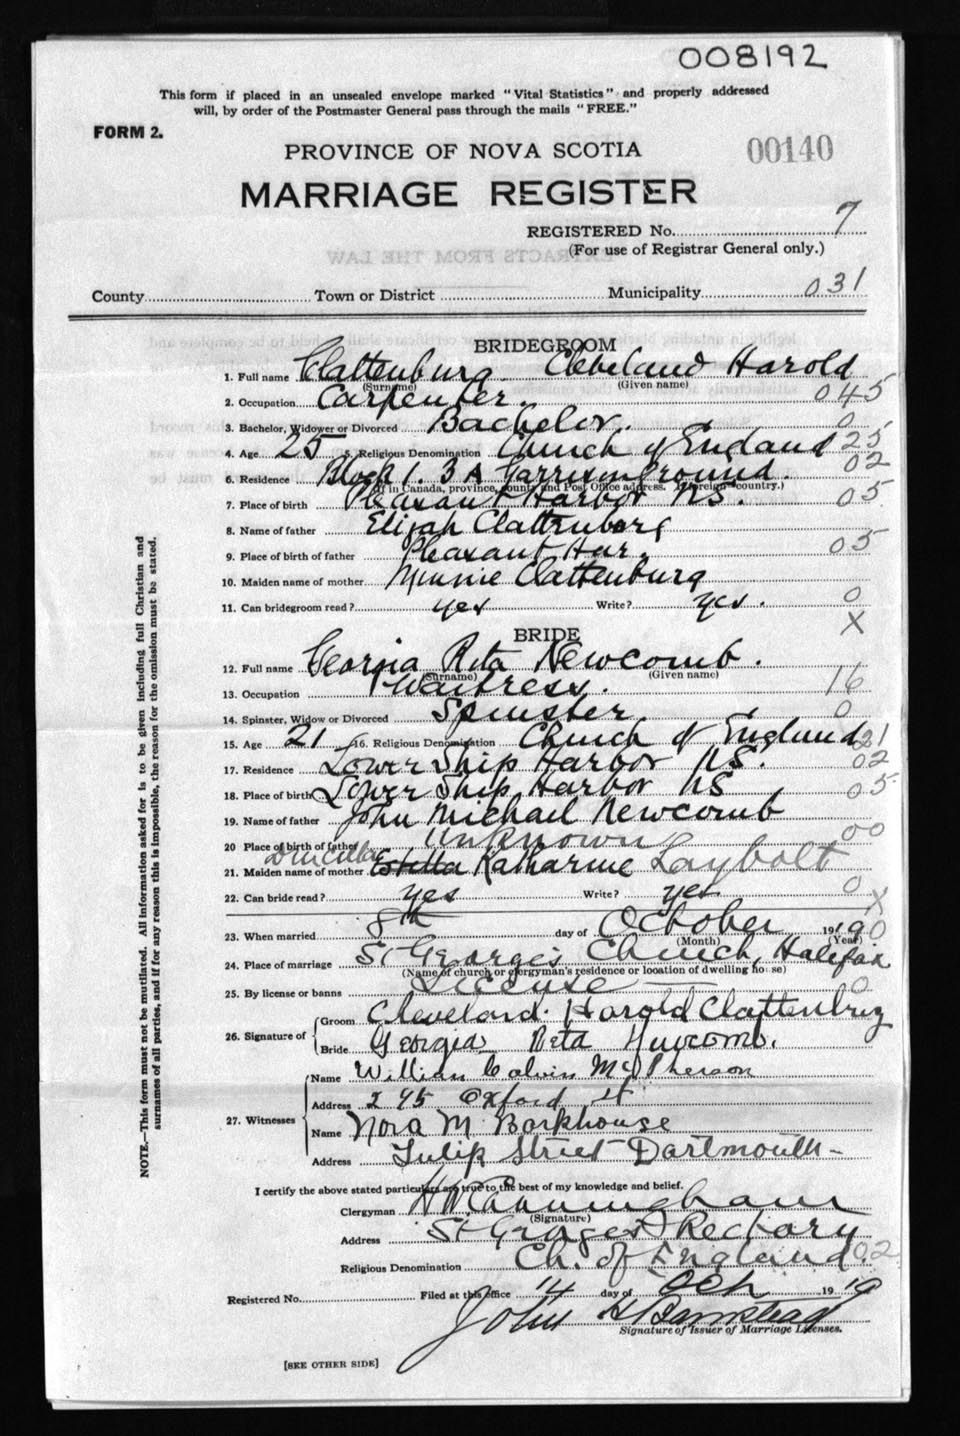 008192
This form if placed in an unsealed envelope marked "Vital Statistics" and properly addressed
will, by order of the Postmaster General pass through the mails "FREE."
FORM 2.
PROVINCE OF NOVA SCOTIA
00140
MARRIAGE REGISTER
REGISTERED No. 7
(For use of Registrar General only.)
County Town or District Municipality 031
BRIDEGROOM
1. Full name Clattenburg Cleveland Harold
(Surname) (Given name)
2. Occupation Carpenter. 045
3. Bachelor, Widower or Divorced Bachelor. 0
4. Age 25 5. Religious Denomination Church of England 25
6. Residence Block 1. 3A Garrison Ground. 02
(If in Canada, province, county and Post Office address. If foreign country.)
7. Place of birth Pleasant Harbor NS. 05
8. Name of father Elijah Clattenburg
9. Place of birth of father Pleasant Har. 05
10. Maiden name of mother Minnie Clattenburg
11. Can bridegroom read? yes Write? yes. 0
X
BRIDE
12. Full name Georgia Rita Newcomb.
(Surname) (Given name)
13. Occupation Waitress. 16
14. Spinster, Widow or Divorced Spinster 0
15. Age 21 16. Religious Denomination Church of England 21
17. Residence Lower Ship Harbor NS. 02
18. Place of birth Lower Ship Harbor NS 05
19. Name of father John Michael Newcomb
20 Place of birth of father Unknown 00
Drucilla
21. Maiden name of mother Estella Katharine Laybolt
22. Can bride read? yes Write? yes 0
X
23. When married 8th day of October 1919 0
(Month) (Year)
24. Place of marriage St George's Church, Halifax
(Name of church or clergyman's residence or location of dwelling house)
25. By license or banns License 0
26. Signature of Groom Cleveland Harold Clattenburg
Bride Georgia Reta Newcomb.
27. Witnesses Name William Calvin McPherson
Address 245 Oxford St
Name Nora M Barkhouse
Address Tulip Street Dartmouth
I certify the above stated particulars are true to the best of my knowledge and belief.
Clergyman H W Cunningham
(Signature)
Address St Georges Rectory
Religious Denomination Ch. of England. 02
Registered No. Filed at this office 14 day of Oct 1919
John H Barnstead
Signature of Issuer of Marriage Licenses.
[SEE OTHER SIDE]
NOTE.—This form must not be mutilated. All information asked for is to be given including full Christian and
surnames of all parties, and if for any reason this is impossible, the reason for the omission must be stated.